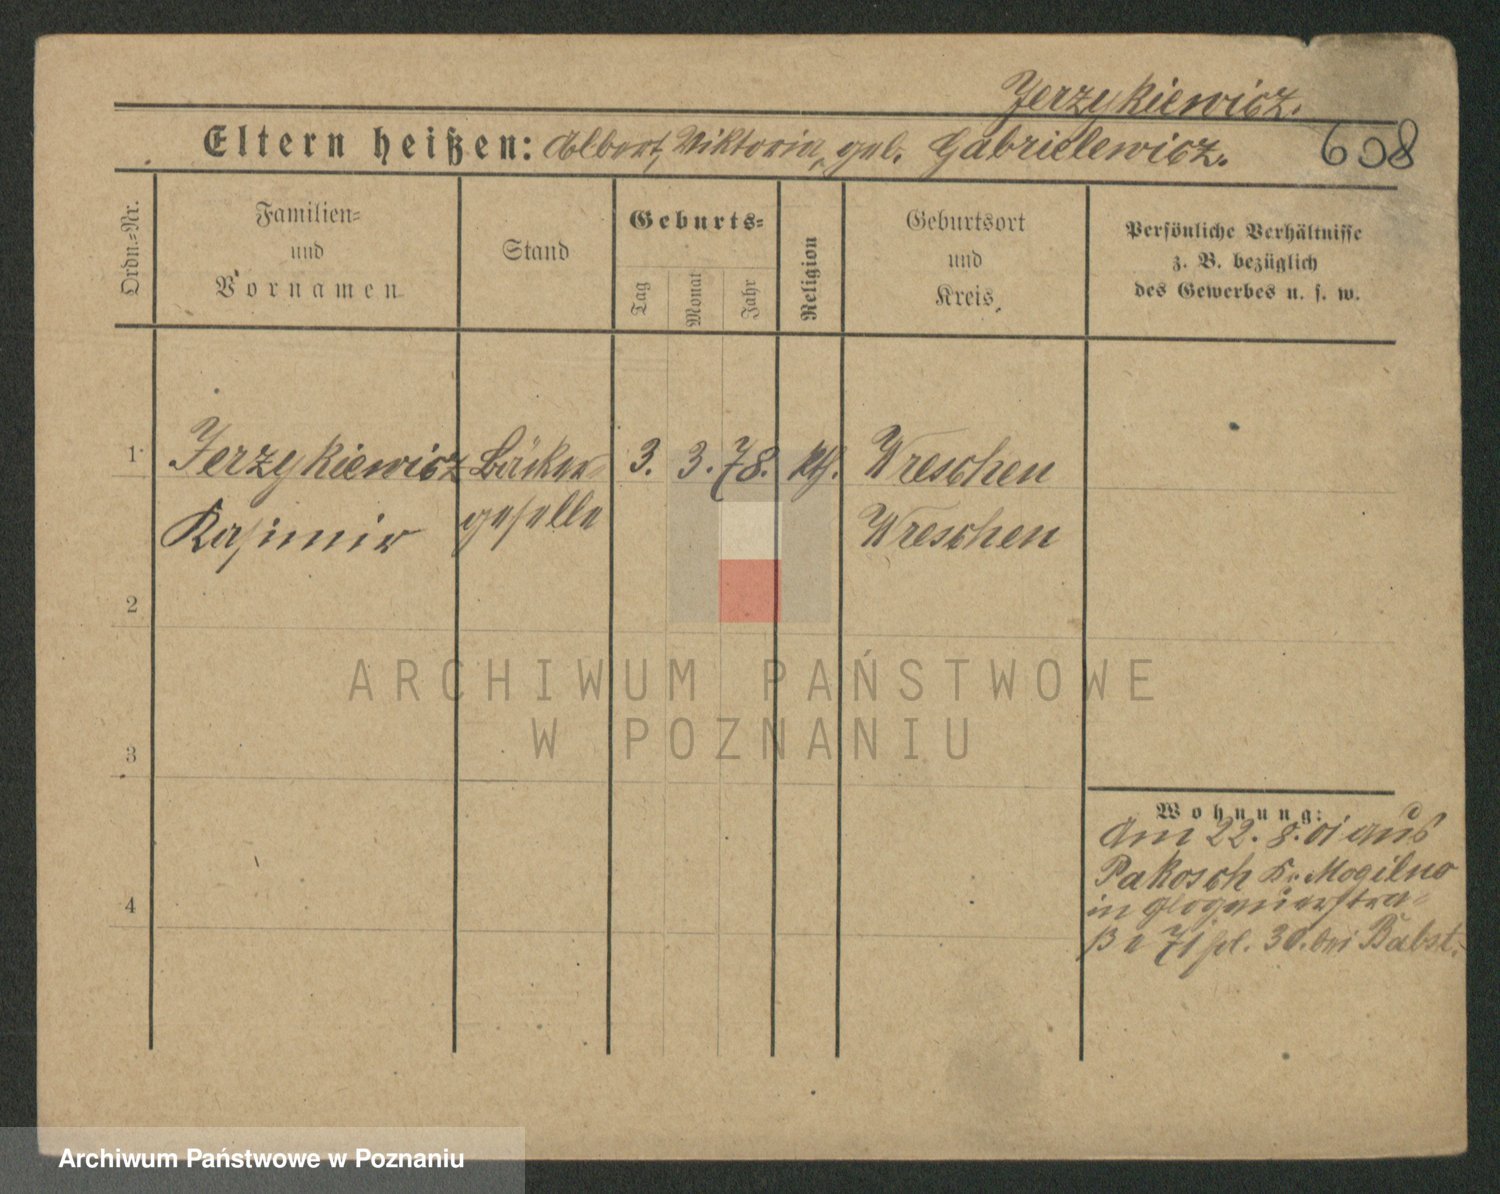 Jerzykiewicz.
Eltern heißen: Albert, Viktoria, geb. Gabrielewicz.
608
Ordn.=Nr.
Familien=
und
Vornamen
Stand
Geburts=
Tag
Monat
Jahr
Religion
Geburtsort
und
Kreis
Persönliche Verhältnisse
z. B. bezüglich
des Gewerbes u. s. w.
1 Jerzykiewicz Bäcker= 3. 3. 78. kth. Wreschen
Kasimir geselle Wreschen
2
3
4
Wohnung:
Am 22. 8. 01 aus
Pakosch Kr. Mogilno
in Glogauerstra=
ße 71 bei Babst.
ARCHIWUM PAŃSTWOWE
W POZNANIU
Archiwum Państwowe w Poznaniu